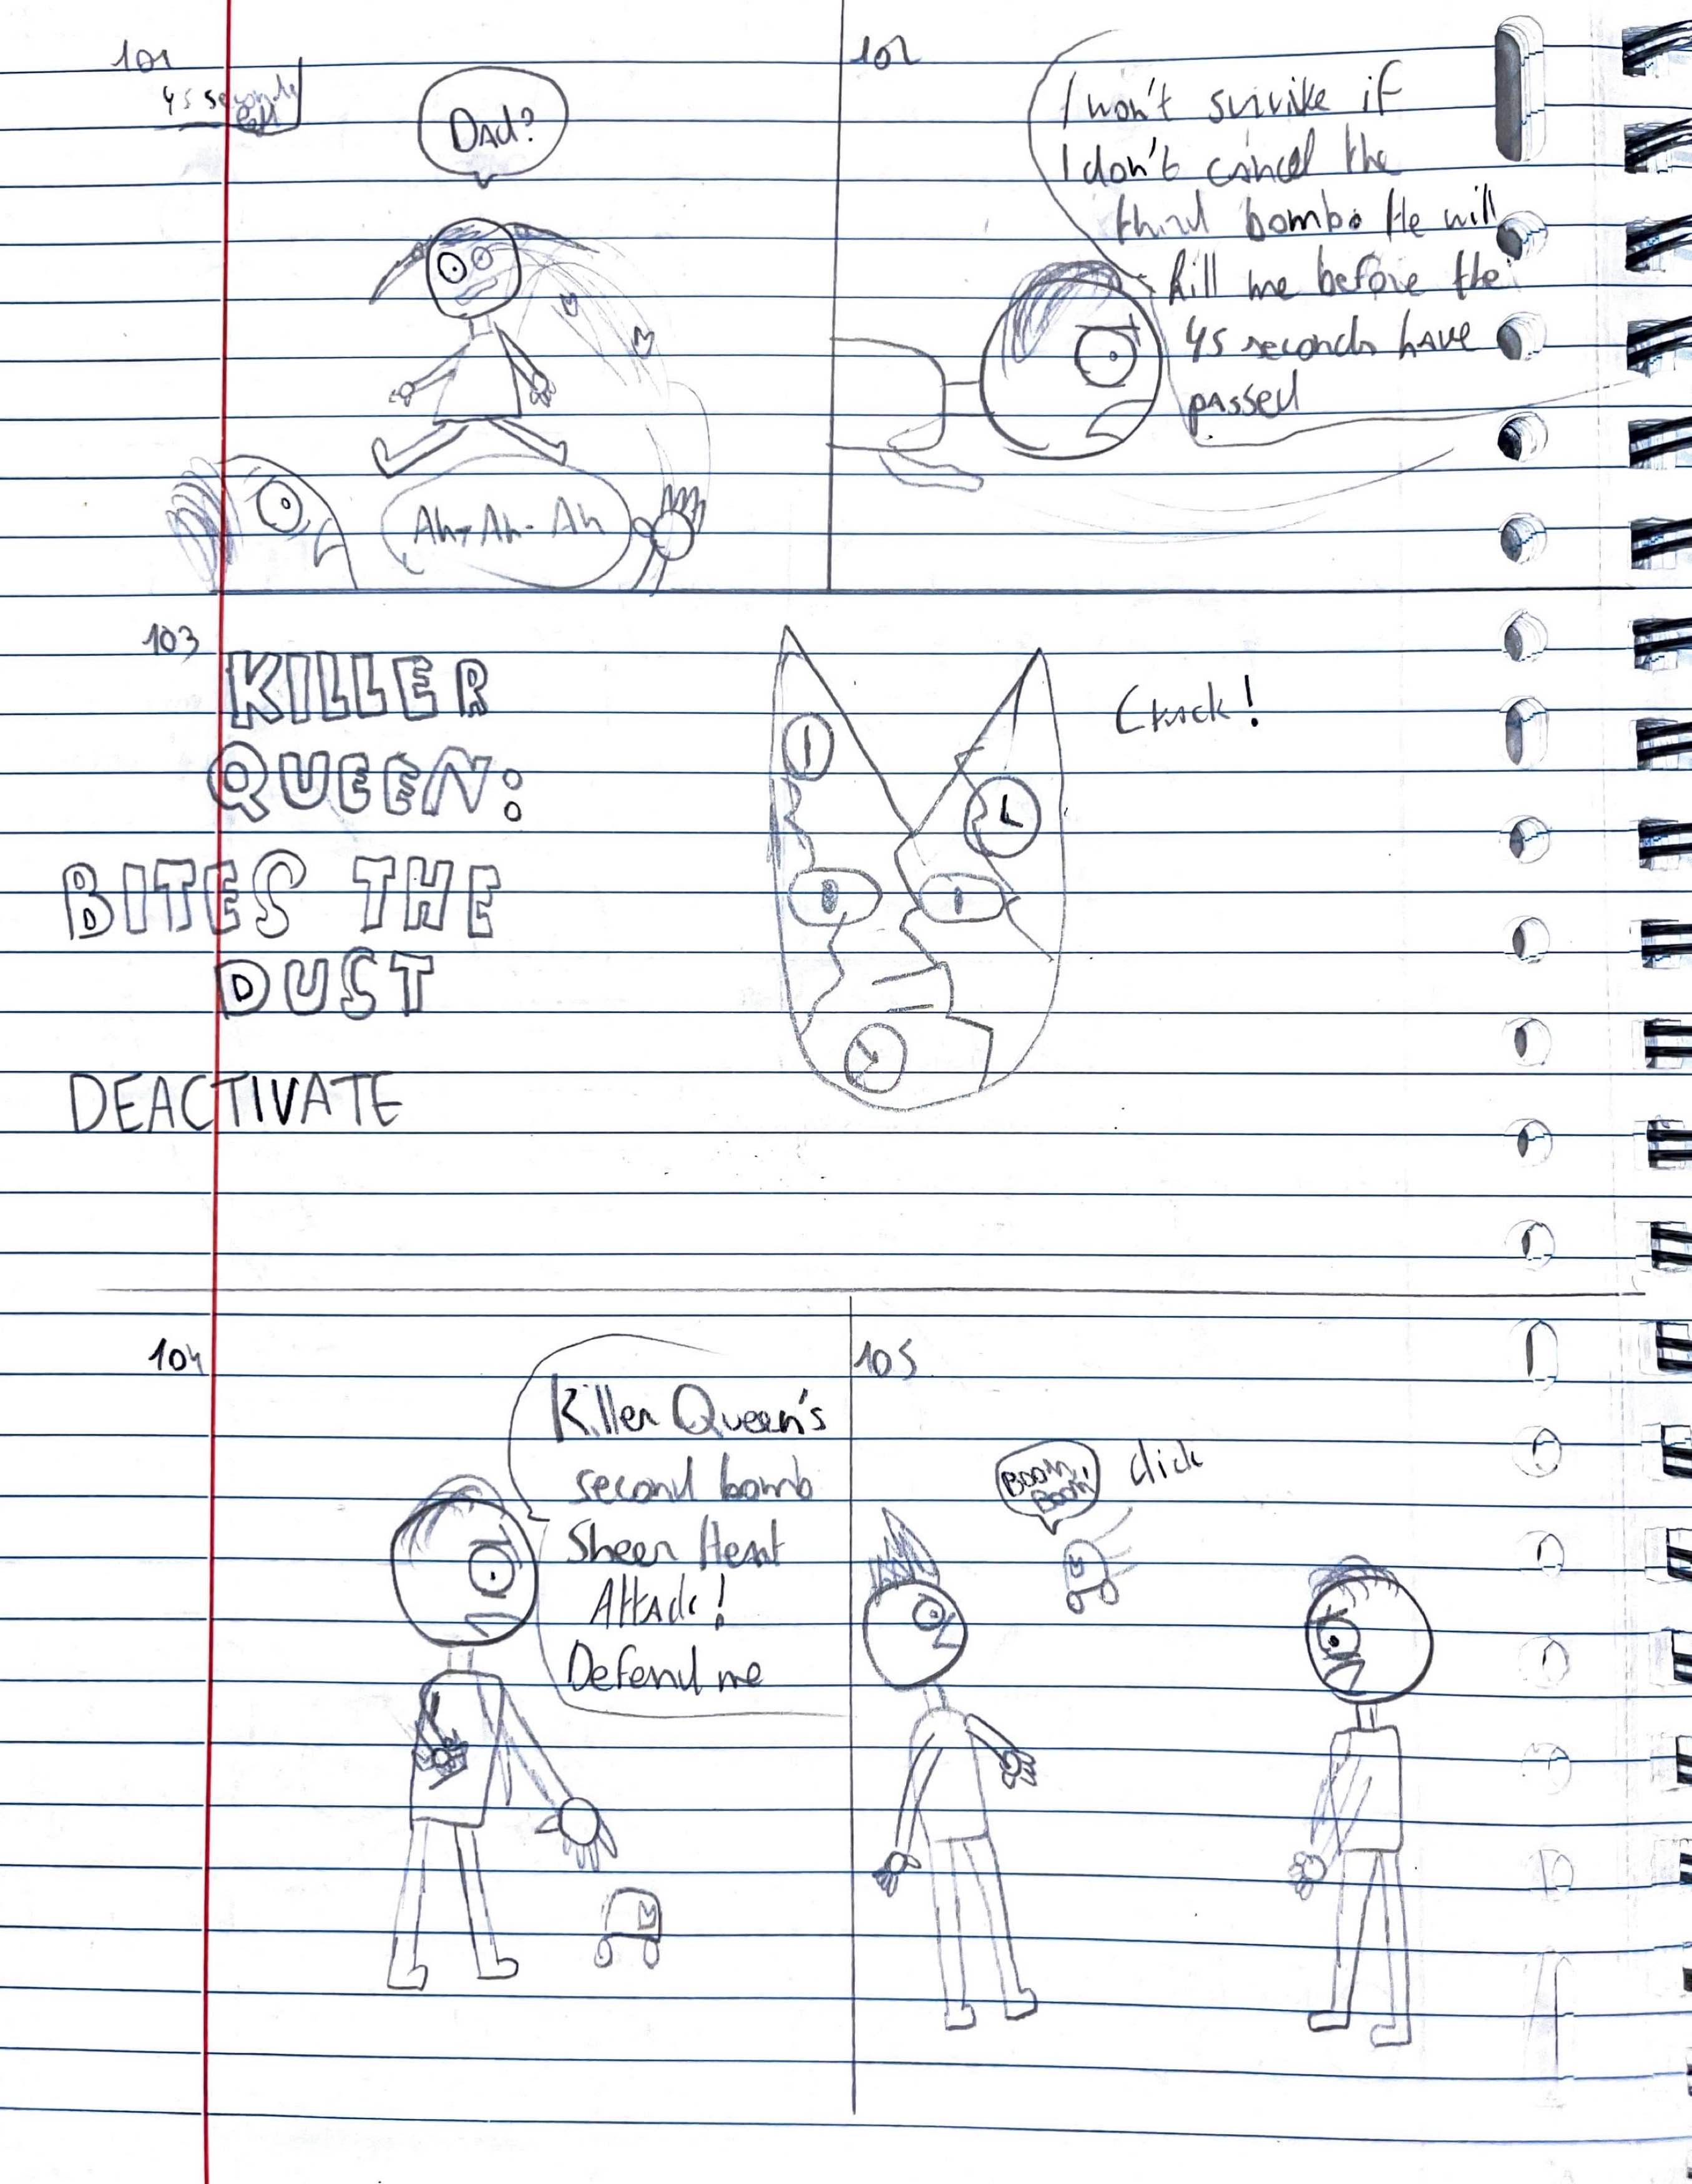 101
45 seconds
left
Dad?
Ah-Ah-Ah
102
I won't survive if
I don't cancel the
third bomb. He will
kill me before the
45 seconds have
passed
103
KILLER
QUEEN:
BITES THE
DUST
DEACTIVATE
Crack!
104
Killer Queen's
second bomb
Sheer Heart
Attack!
Defend me
105
BOOM,
BOOM!
click